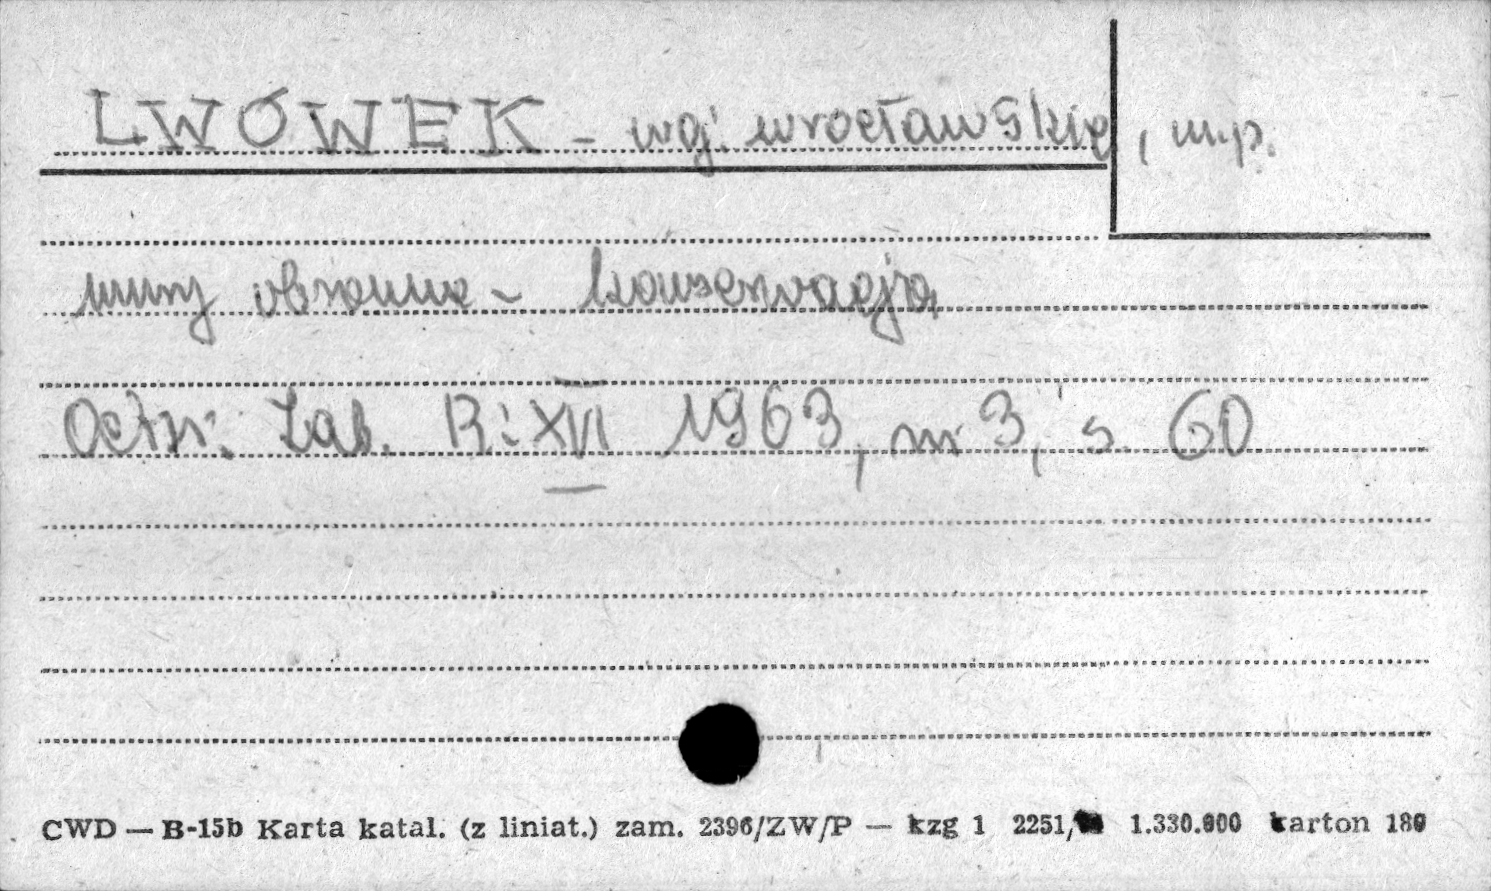 LWÓWEK - woj. wrocławskie, m.p.
mury obronne - konserwacja
Ochr. Zab. R: XVI 1963, nr 3, s. 60
CWD — B-15b Karta katal. (z liniat.) zam. 2396/ZW/P — kzg 1 2251/ 1.330.000 karton 180